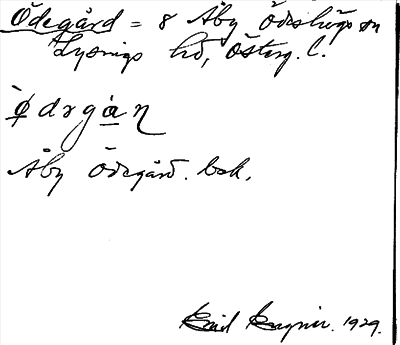 Ödegård = 8 Åby Ödeshögs sn
Lysings hd, Österg. l.
ø̀dɤgàn
Åby Ödegård. bok.
Emil Hagnér. 1929.